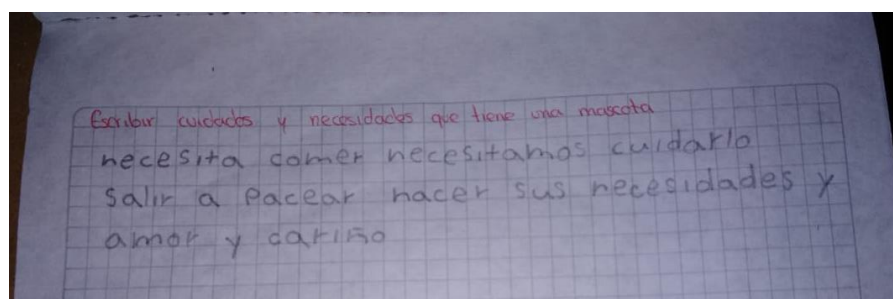 Escribir cuidados y necesidades que tiene una mascota
necesita comer necesitamos cuidarlo
salir a pacear hacer sus necesidades y
amor y cariño